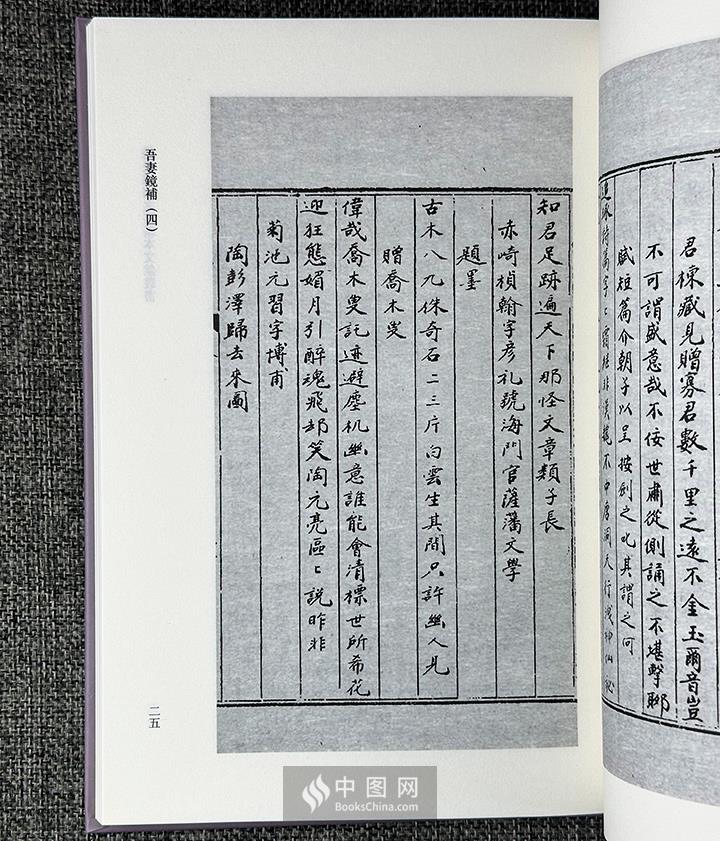 君棟臧見贈寡君數千里之遠不金玉爾音豈
不可謂盛意哉不佞世肅從側誦之不堪擊聊
賦短篇介朝子以呈按劍之叱其謂之何
詩篇字〻霜
知君足跡遍天下那怪文章類子長
赤崎楨翰字彥礼號海門官薩藩文學
題墨
古木八九株奇石二三片白雲生其間只許幽人見
贈喬木叟
偉哉喬木叟託迹避塵机幽意誰能會清標世所希花
迎狂態媚月引醉魂飛却笑陶元亮區〻說昨非
菊池元習字博甫
陶彭澤歸去來圖
吾妻鏡補（四）
二五
中图网
BooksChina.com